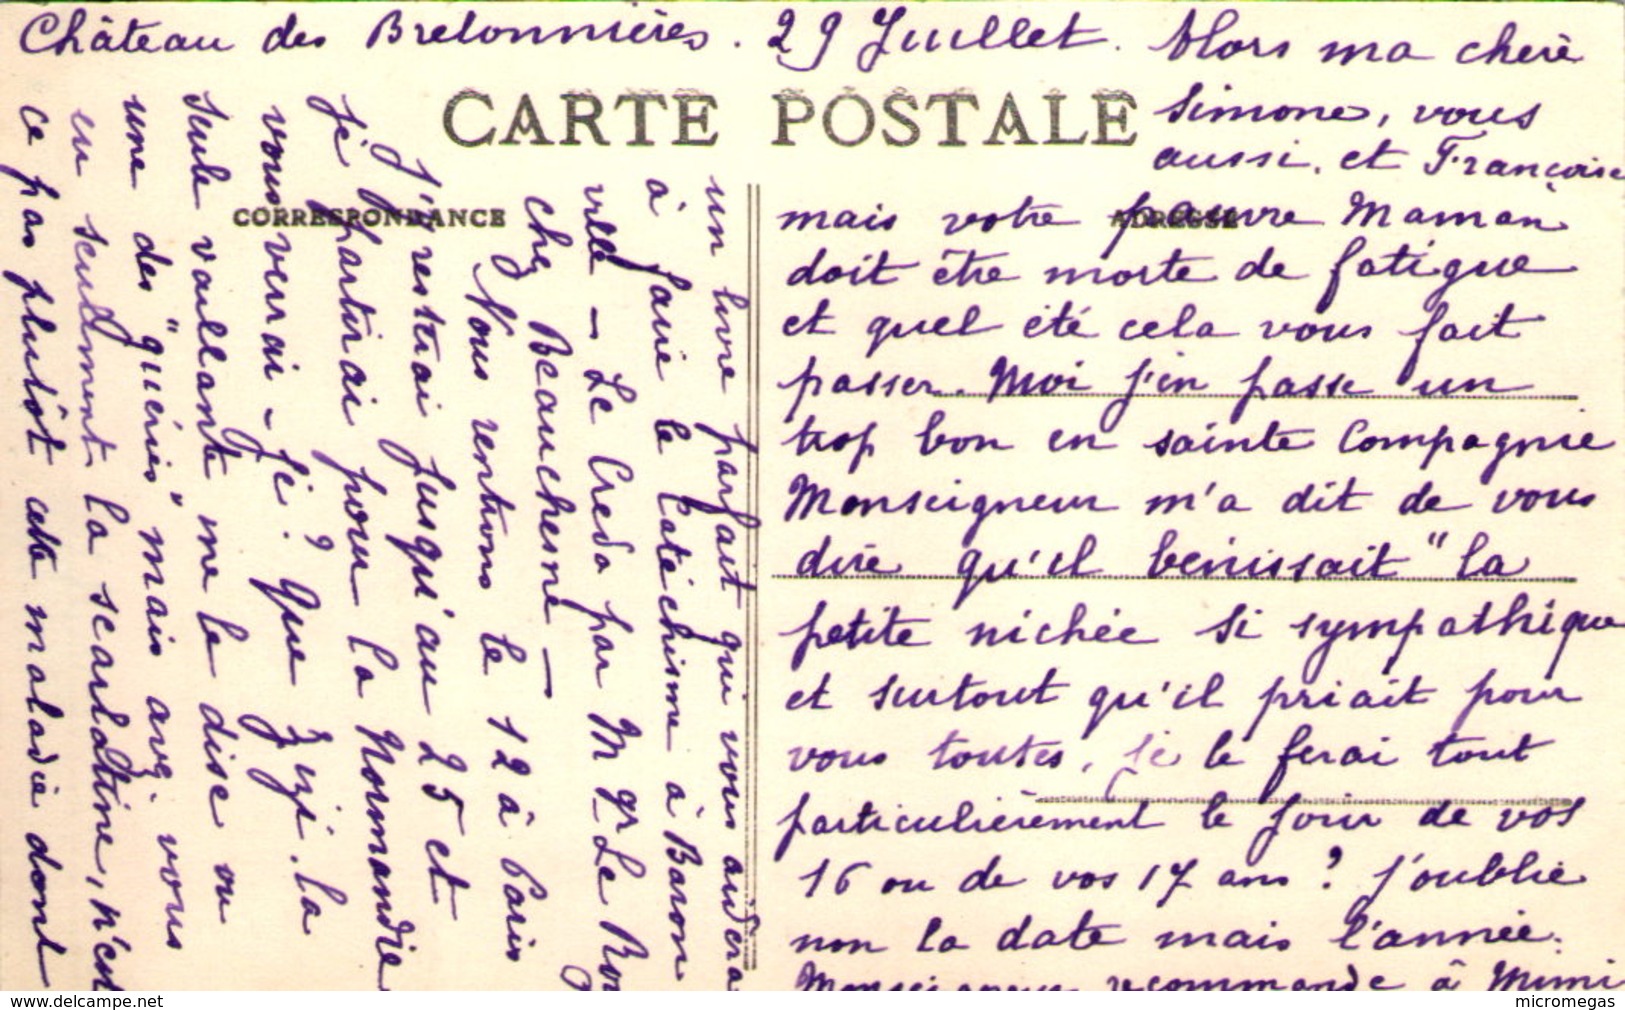 Château des Bretonnières. 29 Juillet. Alors ma chère
Simone, vous
aussi, et Françoise
CARTE POSTALE
CORRESPONDANCE
ADRESSE
mais votre pauvre Maman
doit être morte de fatigue
et quel été cela vous fait
passer. Moi j'en passe un
trop bon en sainte Compagnie
Monseigneur m'a dit de vous
dire qu'il bénissait "la
petite nichée si sympathique
et surtout qu'il priait pour
vous toutes. Je le ferai tout
particulièrement le jour de vos
16 ou de vos 17 ans ? J'oublie
non la date mais l'année.
Monseigneur recommande à Mimi
un livre parfait qui vous aidera
à faire le Catéchisme à Baron
ville – Le Credo par Mgr Le Roy
chez Beauchesne —
Nous rentrons le 12 à Paris
J'y resterai jusqu'au 25 et
je partirai pour la Normandie
vous verrai-je ? Que Zizi. la
seule vaillante me le dise ou
une des "guéries" mais avez. vous
eu seulement la scarlatine, n'est
ce pas plutôt cette maladie dont
www.delcampe.net
micromegas